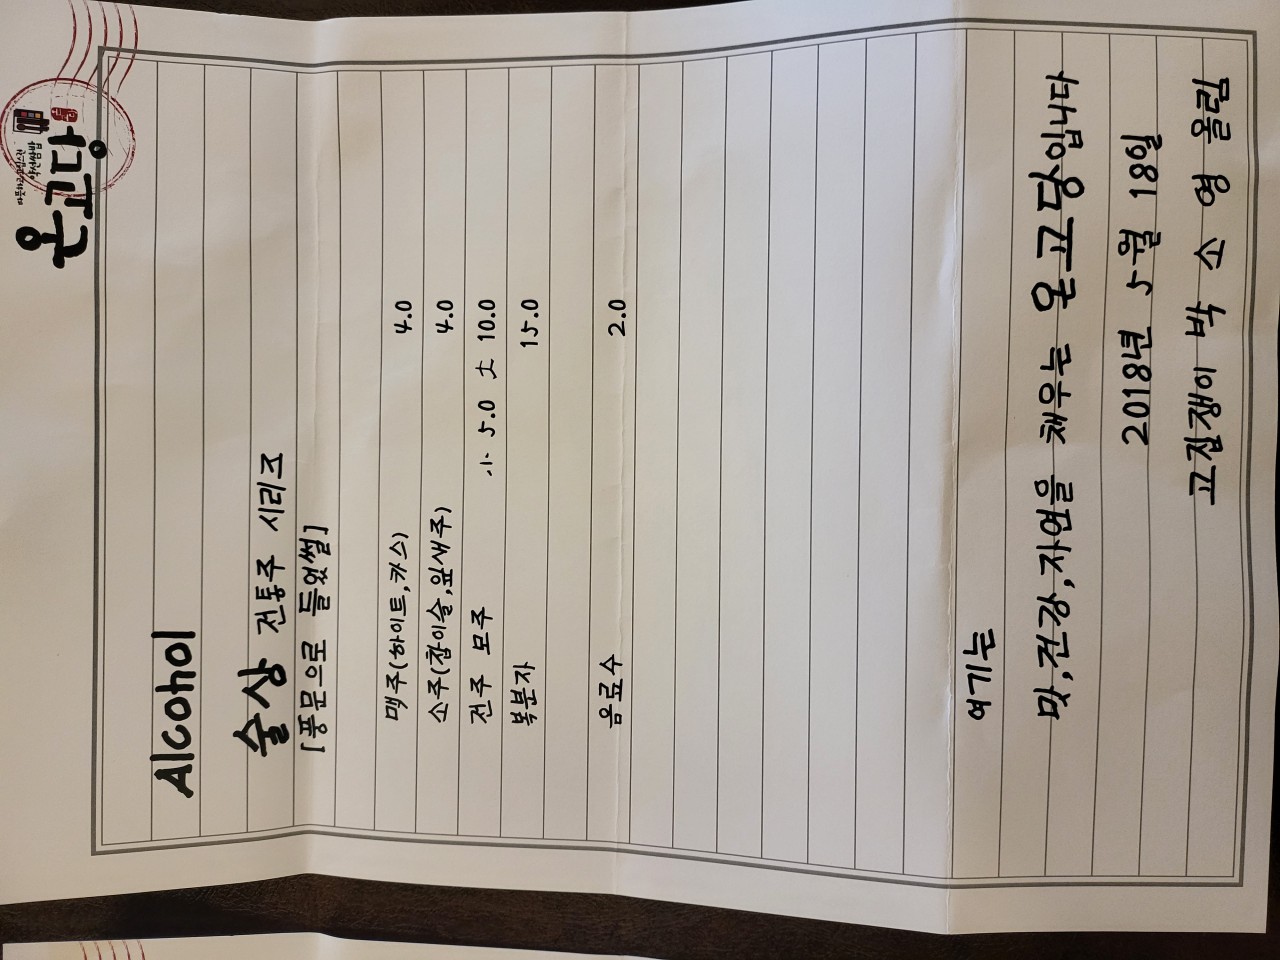 온고당
Alcohol
술상 전통주 시리즈
[풍문으로 들었썰]
맥주(하이트,카스) 4.0
소주(참이슬,잎새주) 4.0
전주 모주 小 5.0 大 10.0
복분자 15.0
음료수 2.0
여기는
맛,건강,자연을 채우는 온고당입니다
2018년 5월 18일
고집쟁이 박 소 영 올림